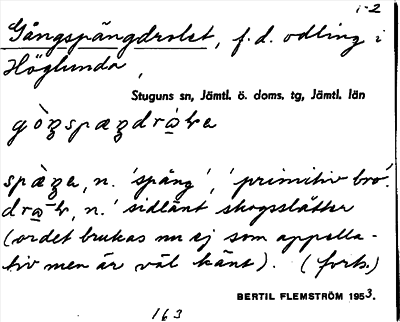 1-2
Gångspångdrolet, f.d. odling i
Höglunda,
Stuguns sn, Jämtl. ö. doms. tg, Jämtl. län
n. 'spång', 'primitiv bro'.
n. 'sidlänt skogsslåtter
(ordet brukas nu ej som appella-
tiv men är väl känt). (forts.)
BERTIL FLEMSTRÖM 1953.
163